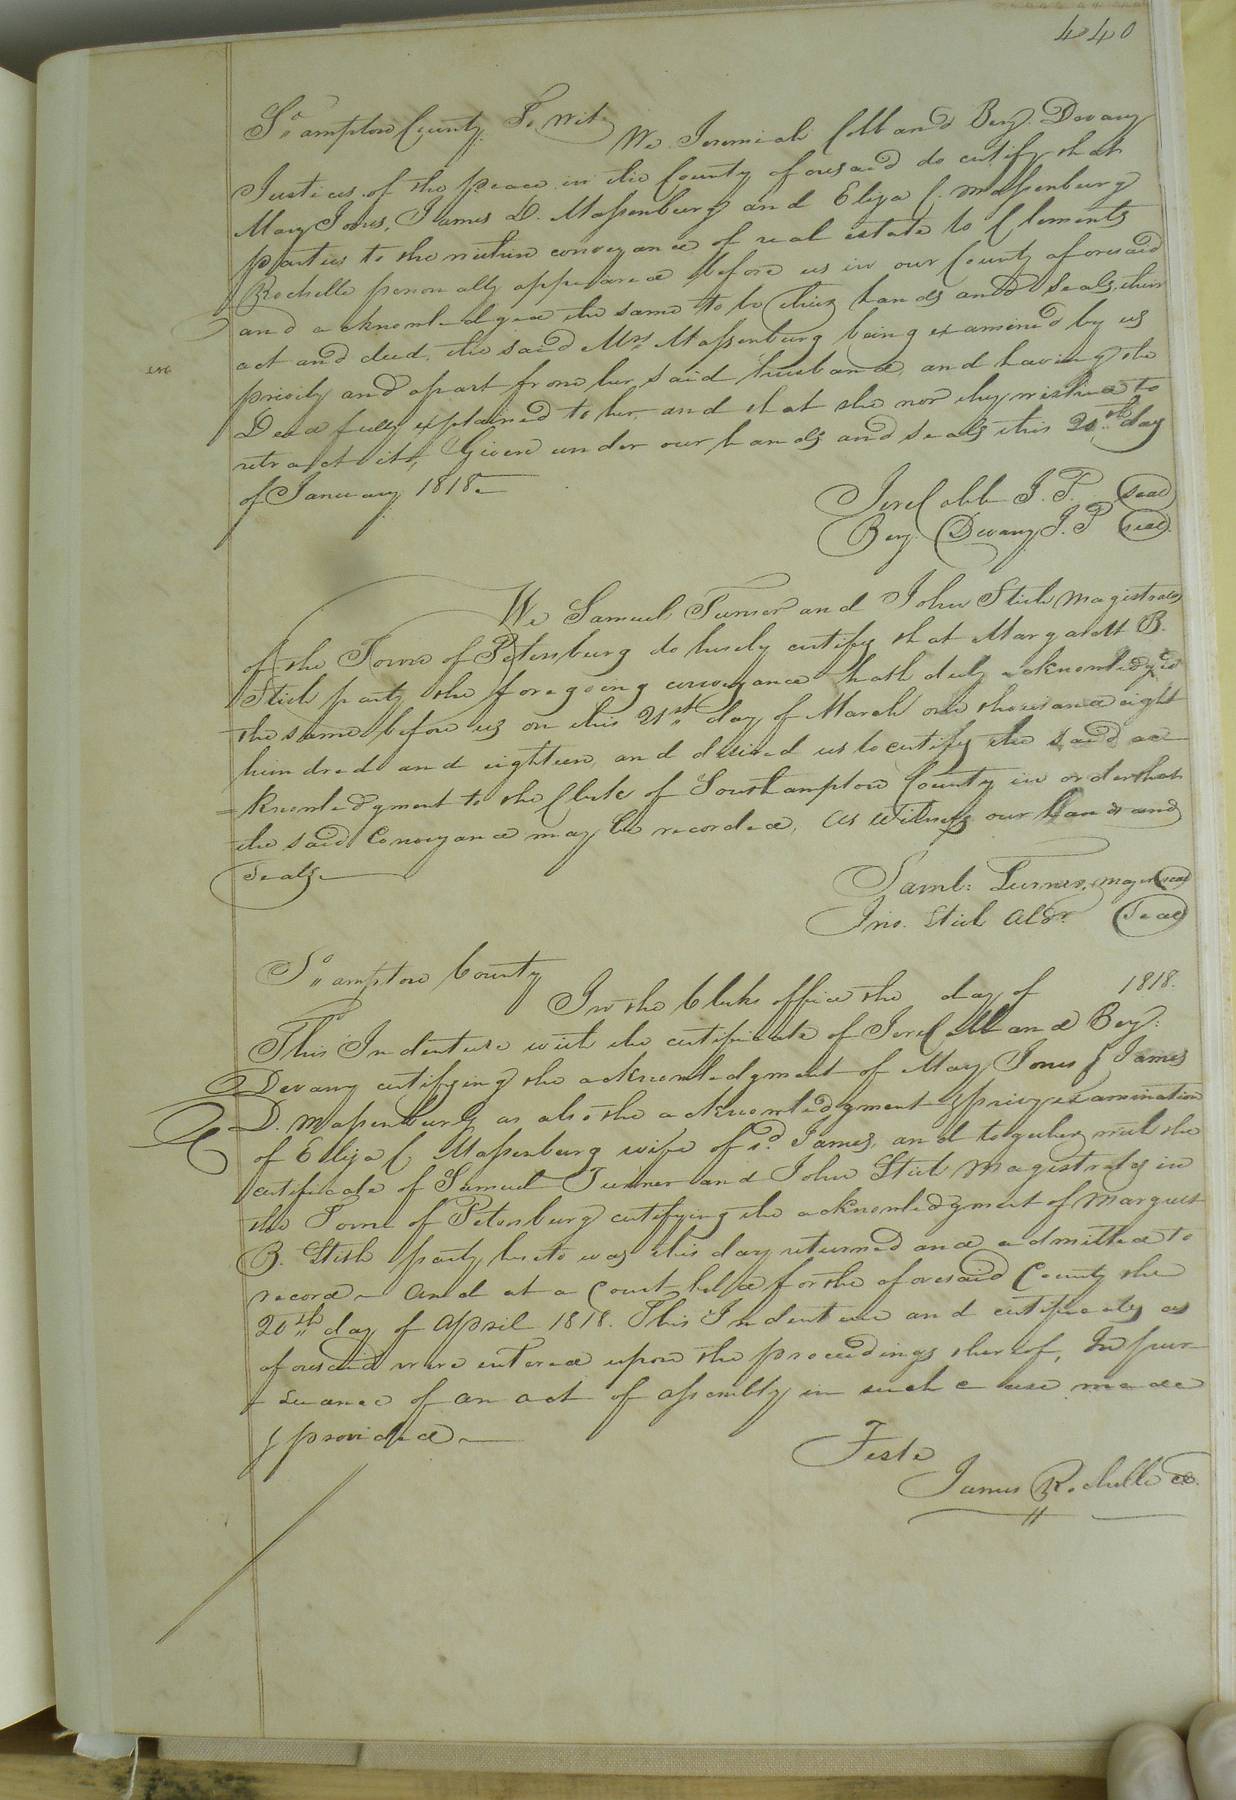 440
So,, ampton County To Wit
We Jeremiah Cobb and Benj. Devany
Justices of the peace in the County aforesaid do certify that
Mary Jones, James D. Massenburg and Eliza C. Massenburg
parties to the within conveyance of real estate to Clements
Rochelle personally appeared before us in our County aforesaid
and acknowledged the same to be their hands and Seals, their
act and deed, the said Mrs Massenburg being examined by us
privily and apart from her said husband, and having the
Deed fully explained to her, and that she nor they wished to
retract it, Given under our hands and seals this 20th day
of January 1818.
Jere Cobb J.P. Seal
Benj Devany J.P seal
We Samuel Turner and John Stith Magistrates
of the Town of Petersburg do hereby certify that Margarett B.
Stith party the foregoing conveyance hath duly acknowledged
the same before us on this 21st day of March one thousand eight
hundred and eighteen, and desired us to certify the said ac
= knowledgment to the Clerk of Southampton County in order that
the said Conveyance may be recorded, As witness our hands and
Seals.
Saml: Turner, Mayor seal
Jno. Stith Aldr. Seal
So,, ampton County
In the Clerks office the day of 1818.
This Indenture with the certificate of Jere Cobb and Benj:
Devany certifying the acknowledgment of Mary Jones & James
D. Massenburg as also the acknowledgment & privy examination
of Eliza C. Massenburg wife of sd. James, and together with the
certificate of Samuel Turner and John Stith Magistrates in
the Town of Petersburg certifying the acknowledgment of Margaret
B. Stith party hereto was this day returned and admitted to
record — And at a Court held for the aforesaid County the
20th day of April 1818. This Indenture and certificates as
aforesaid were entered upon the proceedings thereof, In pur-
suance of an act of assembly in such case made
& provided —
Teste
James Rochelle CC.